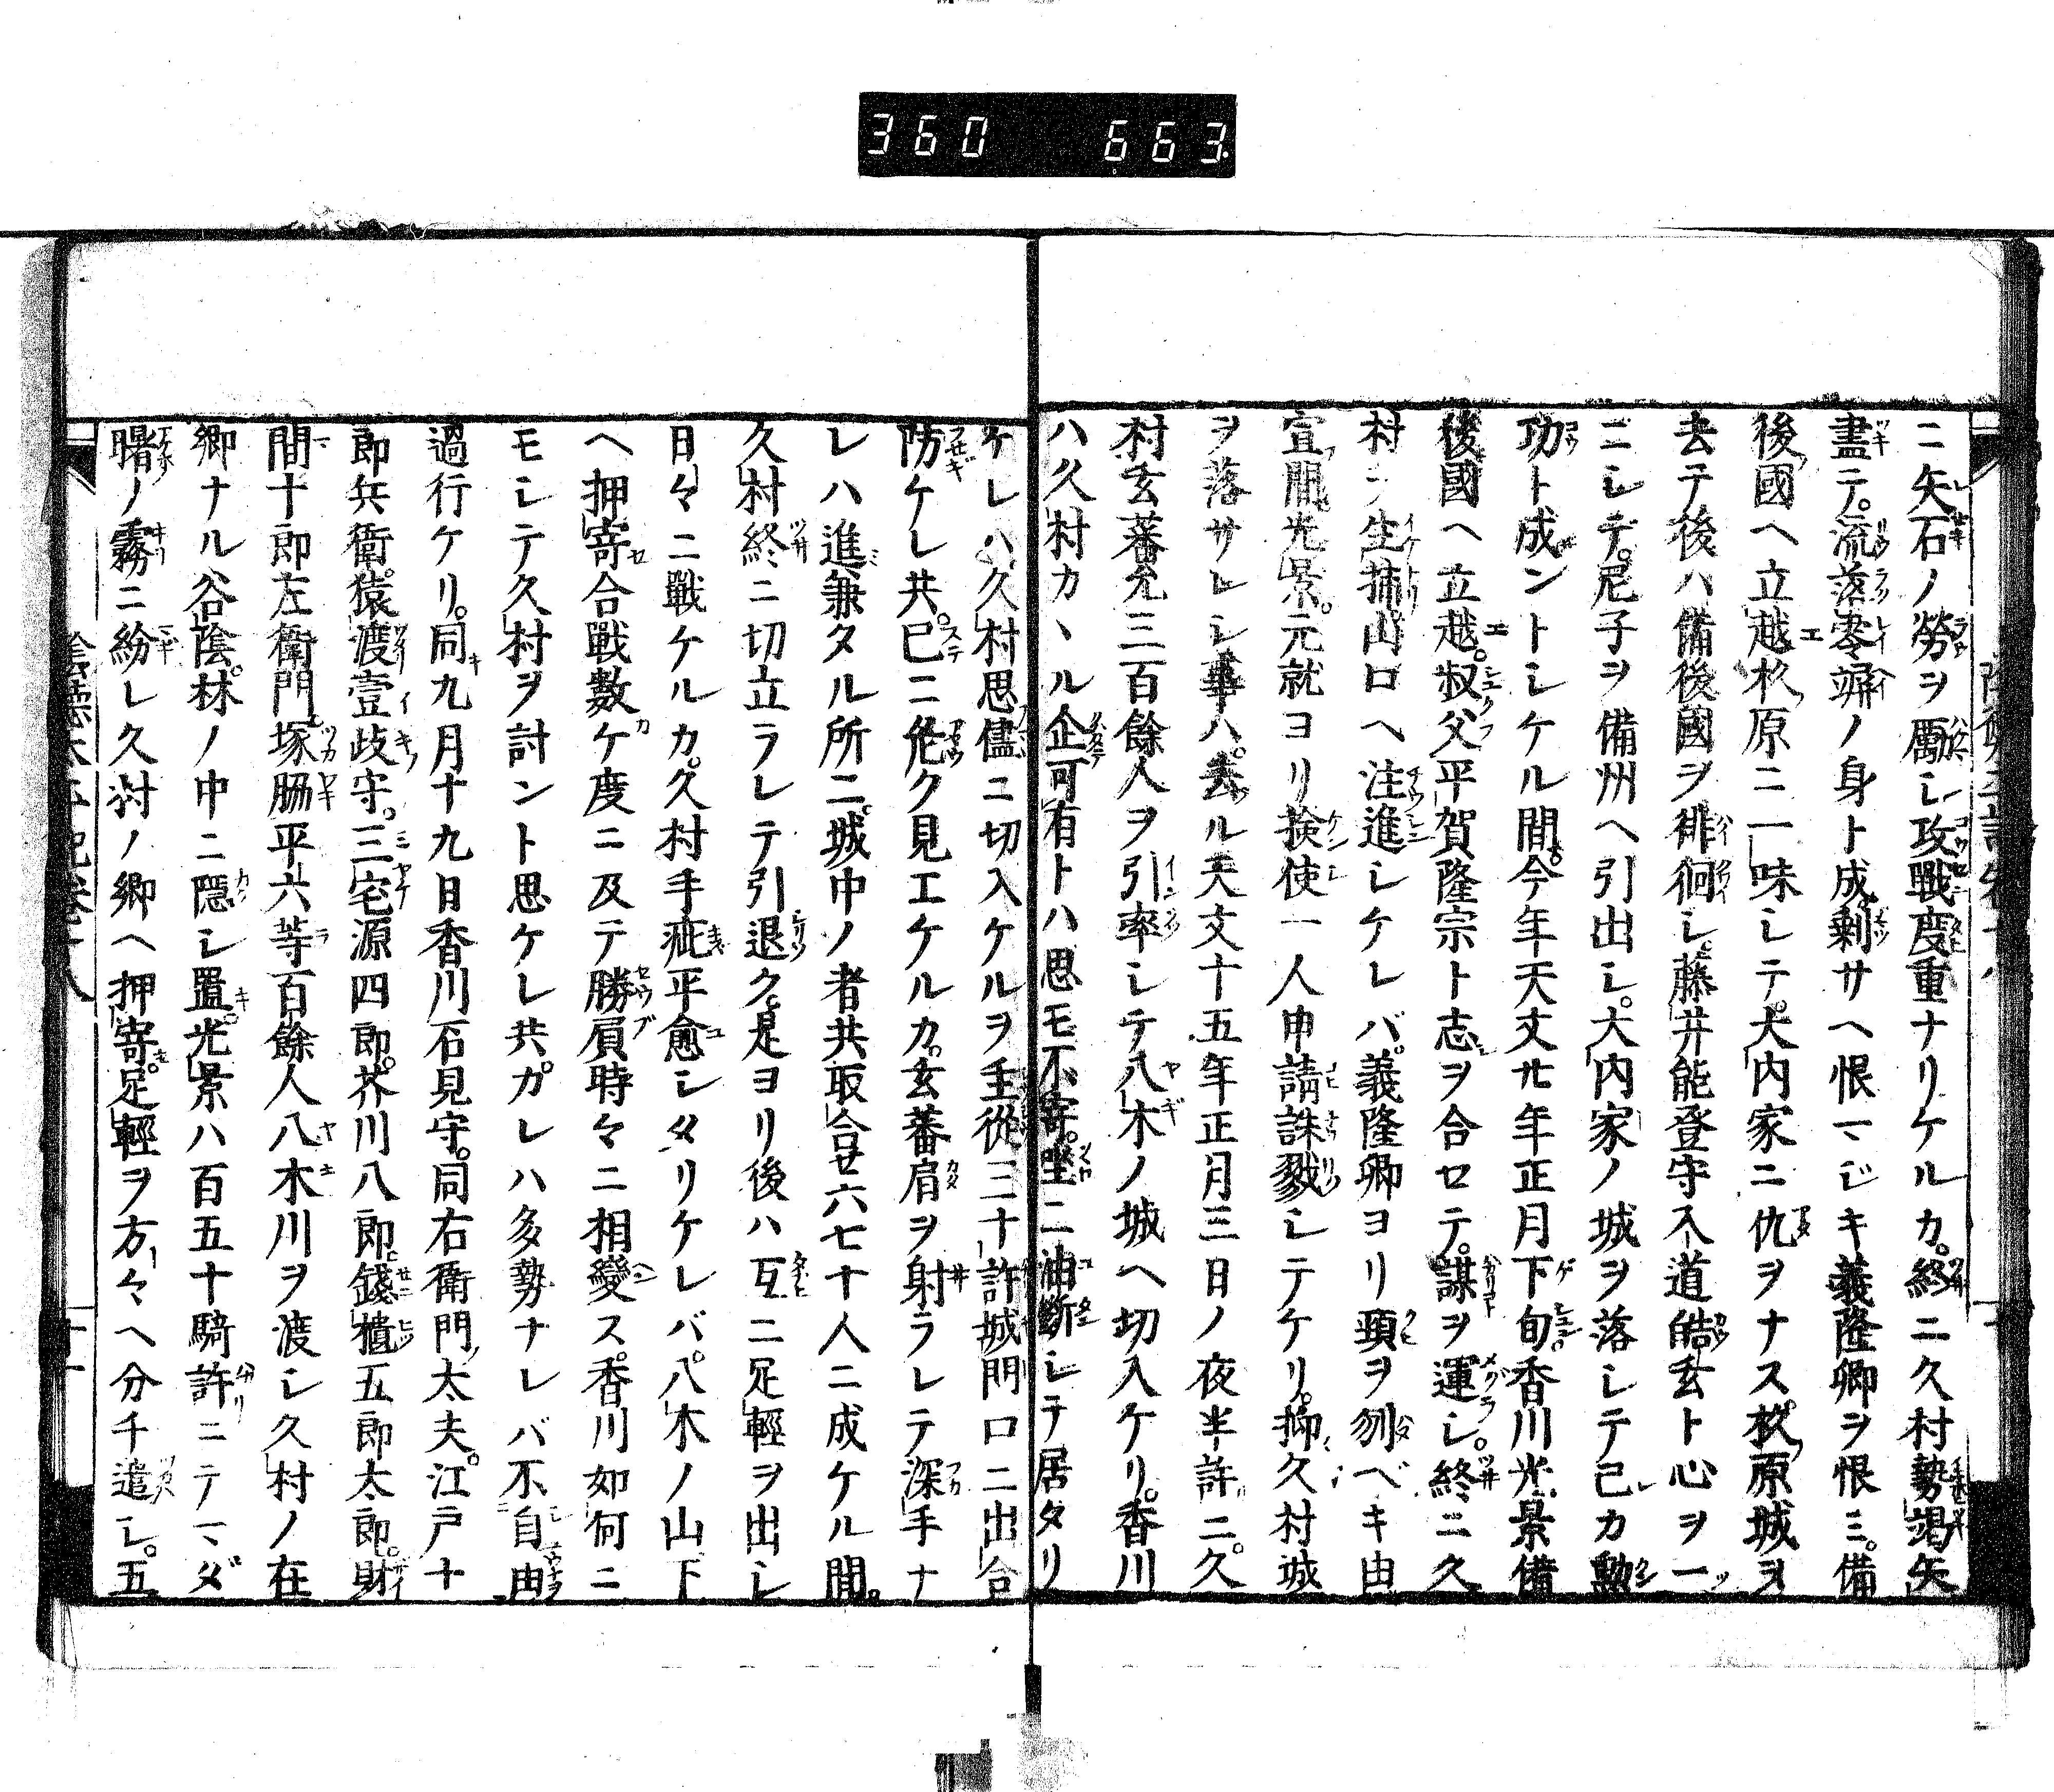 360 663
ニ矢石ノ勞ヲ勵シ攻戰度重ナリケルカ。終ニ久村勢竭矢
盡テ。流落零竮ノ身ト成。剰サヘ恨マジキ義隆卿ヲ恨ミ。備
後國ヘ立越杦原ニ一味シテ。大内家ニ仇ヲナス。杦原城ヲ
去テ後ハ備後國ヲ徘徊シ。藤井能登守入道皓玄ト心ヲ一
ニシテ。尼子ヲ備州ヘ引出シ。大内家ノ城ヲ落シテ己カ勲
功ト成ントシケル間。今年天文廿年正月下旬。香川光景備
後國ヘ立越。叔父平賀隆宗ト志ヲ合セテ。謀ヲ運シ。終ニ久
村ヲ生捕。山口ヘ注進シケレバ。義隆卿ヨリ頸ヲ刎ベキ由
宣間。光景。元就ヨリ検使一人申請誅戮シテケリ。抑久村城
ヲ落サレシ事ハ。去ル天文十五年正月三日ノ夜半許ニ。久
村玄蕃允三百餘人ヲ引率シテ八木ノ城ヘ切入ケリ。香川
ハ久村カヽル企可有トハ思モ不寄。 ニ油断シテ居タリ
ケレハ。久村思儘ニ切入ケルヲ主從三十許城門口ニ出合
防ケレ共。已ニ危ク見エケルカ。玄蕃肩ヲ射ラレテ深手ナ
レハ進兼タル所ニ。城中ノ者共馭合廿六七十人ニ成ケル間。
久村終ニ切立ラレテ引退ク。是ヨリ後ハ互ニ足輕ヲ出シ
日々ニ戰ケルカ。久村手疵平愈シタリケレバ。八木ノ山下
ヘ押寄合戰數ケ度ニ及テ勝屓時々ニ相變ス。香川如何ニ
モシテ久村ヲ討ント思ケレ共。カレハ多勢ナレバ不自由
過行ケリ。同九月十九日香川石見守。同右衛門太夫。江戸十
郎兵衛。猿渡壹歧守。三宅源四郎。芥川八郎。錢櫃五郎太郎。財
間十郎左衛門塚脇平六等百餘人八木川ヲ渡シ久村ノ在
郷ナル谷陰。林ノ中ニ隠シ置。光景ハ百五十騎許ニテマダ
曙ノ霧ニ紛レ久村ノ郷ヘ押寄。足輕ヲ方々ヘ分チ遣シ。五